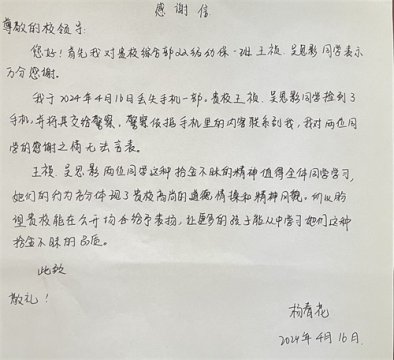 感谢信
尊敬的校领导:
您好！首先我对贵校综合部22级幼保一班王祯、吴思影同学表示
万分感谢。
我于2024年4月16日丢失手机一部。贵校王祯、吴思影同学捡到了
手机,并将其交给警察,警察依据手机里的内容联系到我,我对两位同
学的感谢之情无法言表。
王祯、吴思影两位同学这种拾金不昧的精神值得全体同学学习,
她们的行为充分体现了贵校高尚的道德情操和精神风貌。所以盼
望贵校能在公开场合给予表扬,让更多的孩子能从中学习她们这种
拾金不昧的品质。
此致
敬礼！
杨春花
2024年4月16日